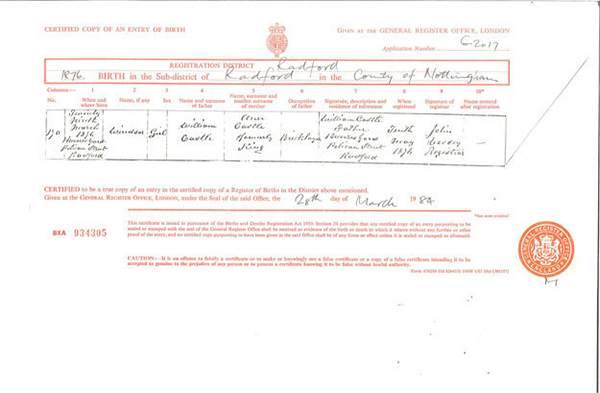 CERTIFIED COPY OF AN ENTRY OF BIRTH
GIVEN AT THE GENERAL REGISTER OFFICE, LONDON
Application Number G 2017
REGISTRATION DISTRICT Radford
1876. BIRTH in the Sub-district of Radford in the County of Nottingham
Columns:— 1 2 3 4 5 6 7 8 9 10*
No. When and where born Name, if any Sex Name and surname of father Name, surname and maiden surname of mother Occupation of father Signature, description and residence of informant When registered Signature of registrar Name entered after registration
170 Twenty Ninth March 1876 Pelican Street Radford
Girl
William Castle
Ann Castle formerly King
Bricklayer
William Castle Father Pelican Street Radford
Tenth May 1876
John Registrar
—
CERTIFIED to be a true copy of an entry in the certified copy of a Register of Births in the District above mentioned.
Given at the GENERAL REGISTER OFFICE, LONDON, under the Seal of the said Office, the 28th day of March 1984
*See note overleaf
BXA 934305
This certificate is issued in pursuance of the Births and Deaths Registration Act 1953. Section 34 provides that any certified copy of an entry purporting to be
sealed or stamped with the seal of the General Register Office shall be received as evidence of the birth or death to which it relates without any further or other
proof of the entry, and no certified copy purporting to have been given in the said Office shall be of any force or effect unless it is sealed or stamped as aforesaid.
CAUTION:—It is an offence to falsify a certificate or to make or knowingly use a false certificate or a copy of a false certificate intending it to be
accepted as genuine to the prejudice of any person or to possess a certificate knowing it to be false without lawful authority.
GENERAL REGISTER OFFICE
ENGLAND